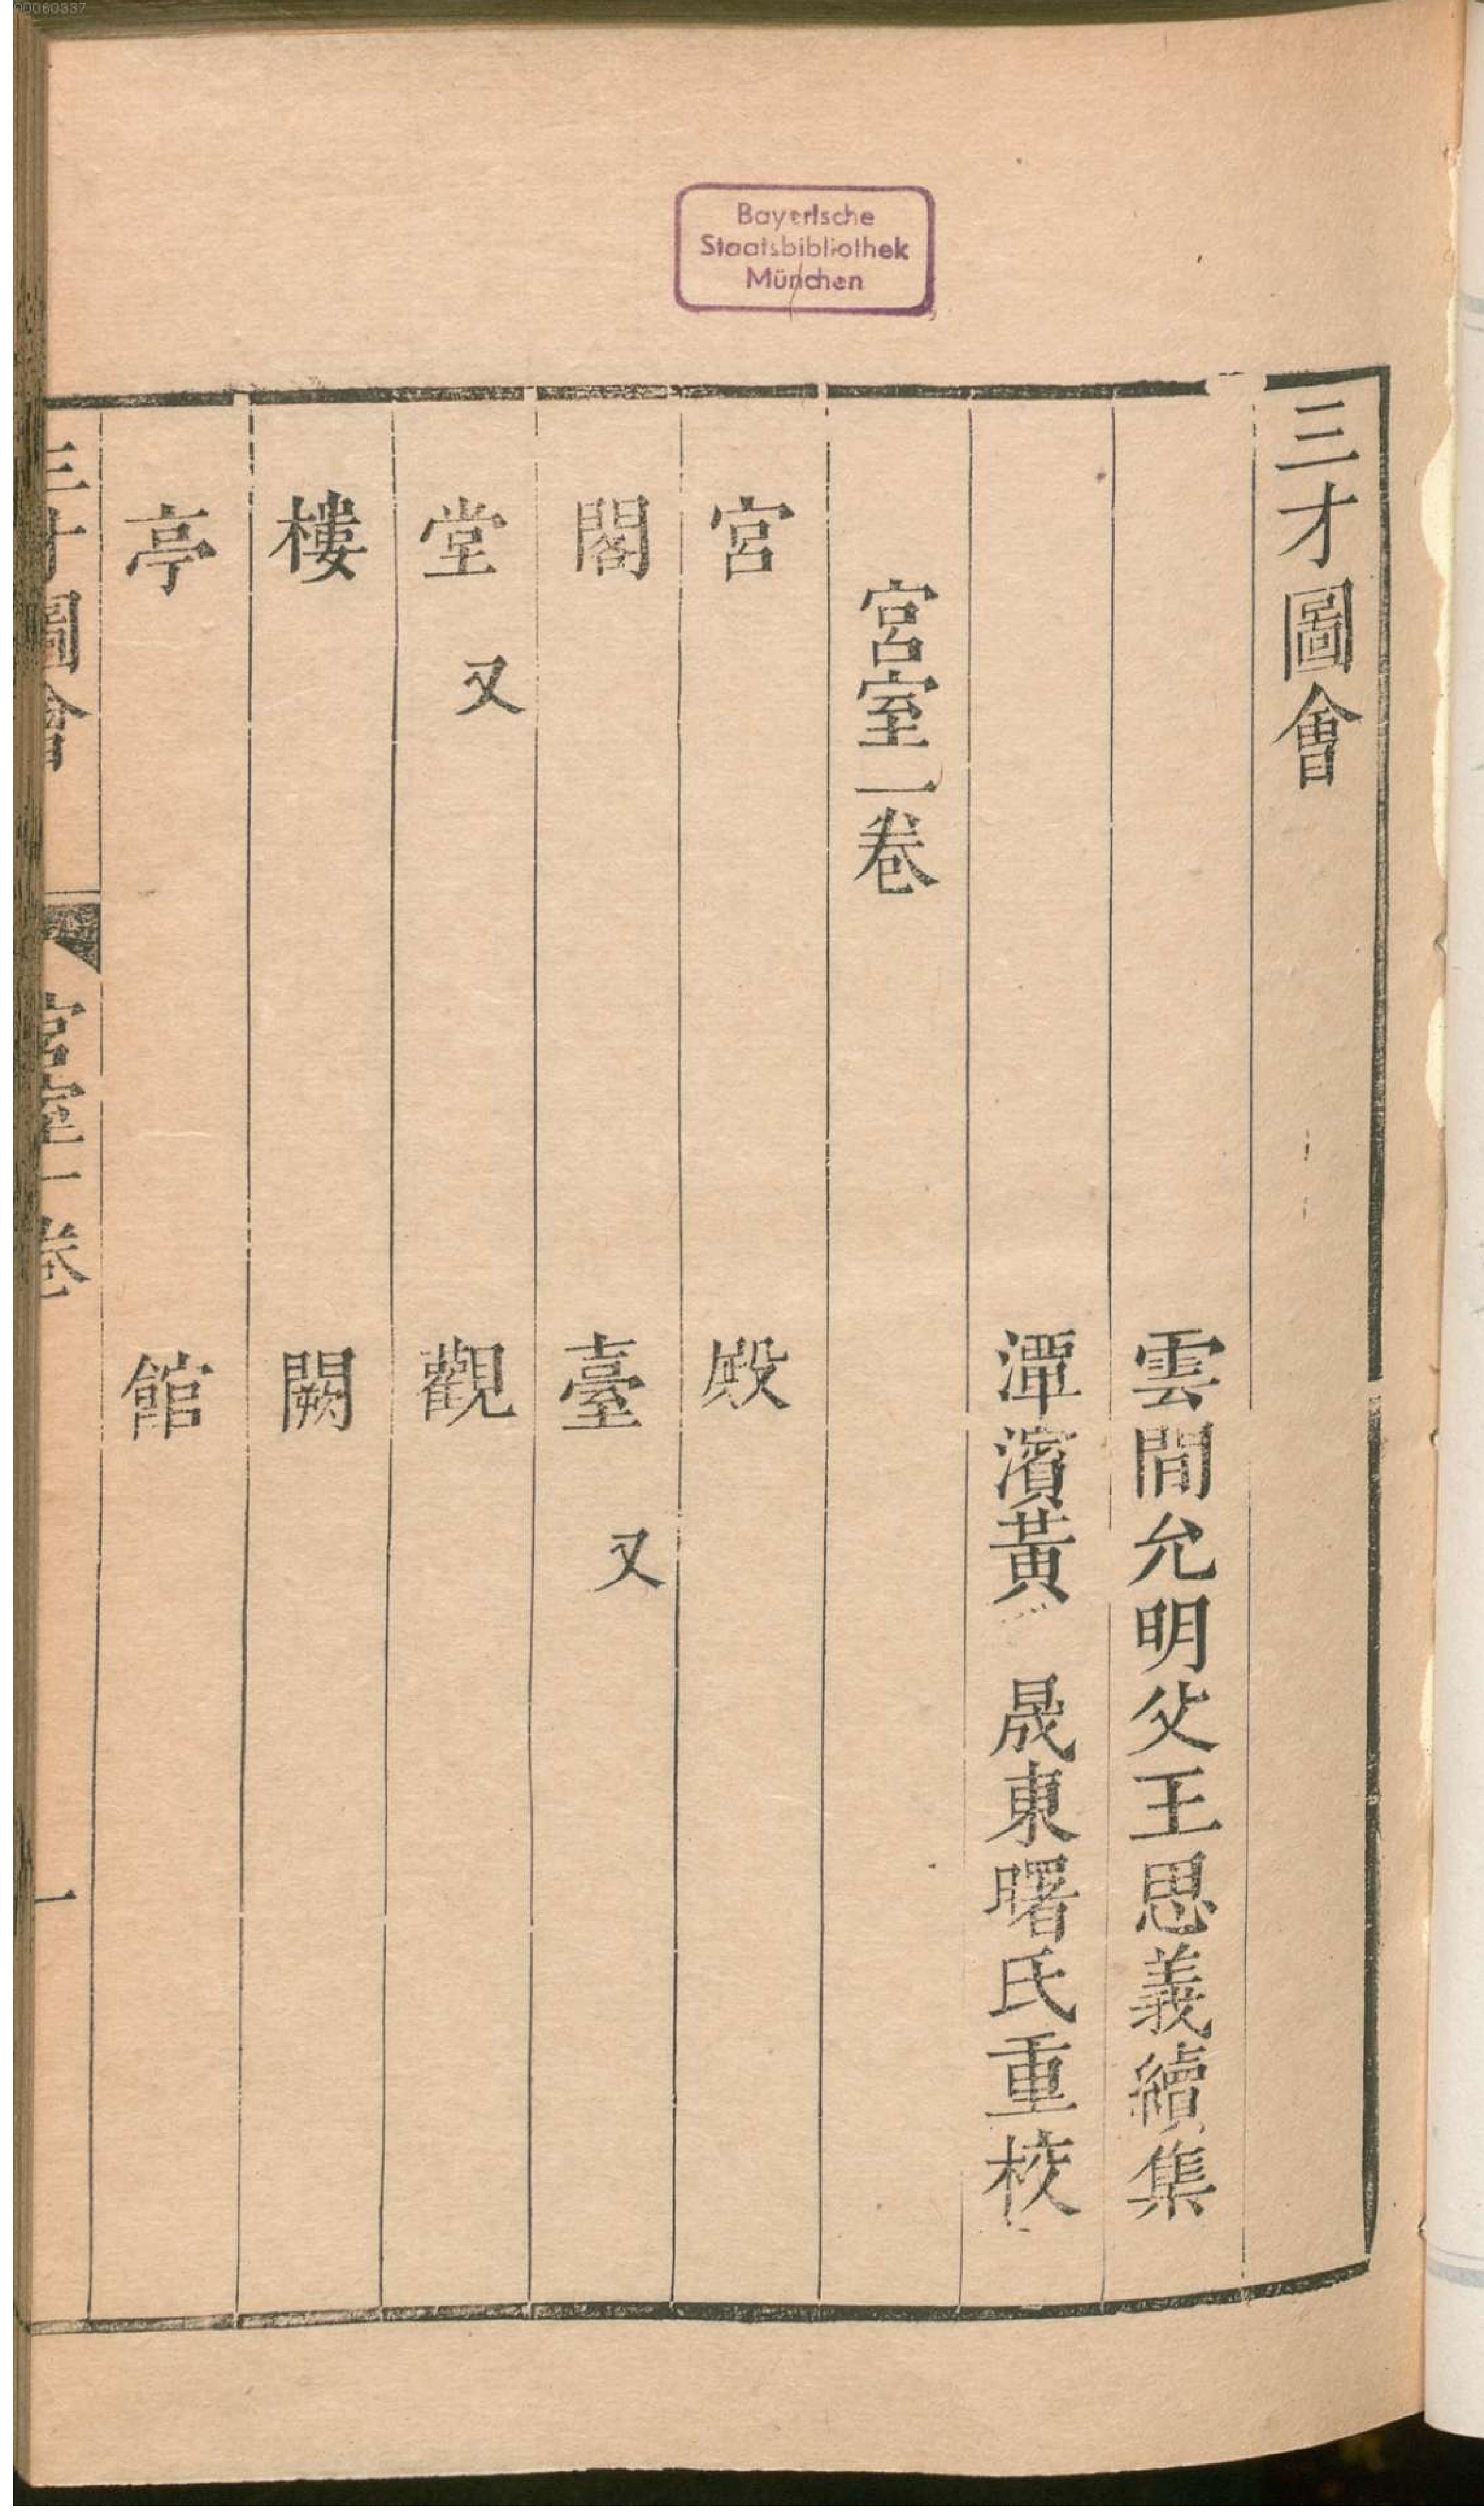 00060337
Bayerische
Staatsbibliothek
München
三才圖會
雲間允明父王思義續集
潭濱黃　晟東曙氏重校
宮室一卷
宮　殿
閣　臺　又
堂　又　觀
樓　闕
亭　館
三才圖會　宮室一卷　一